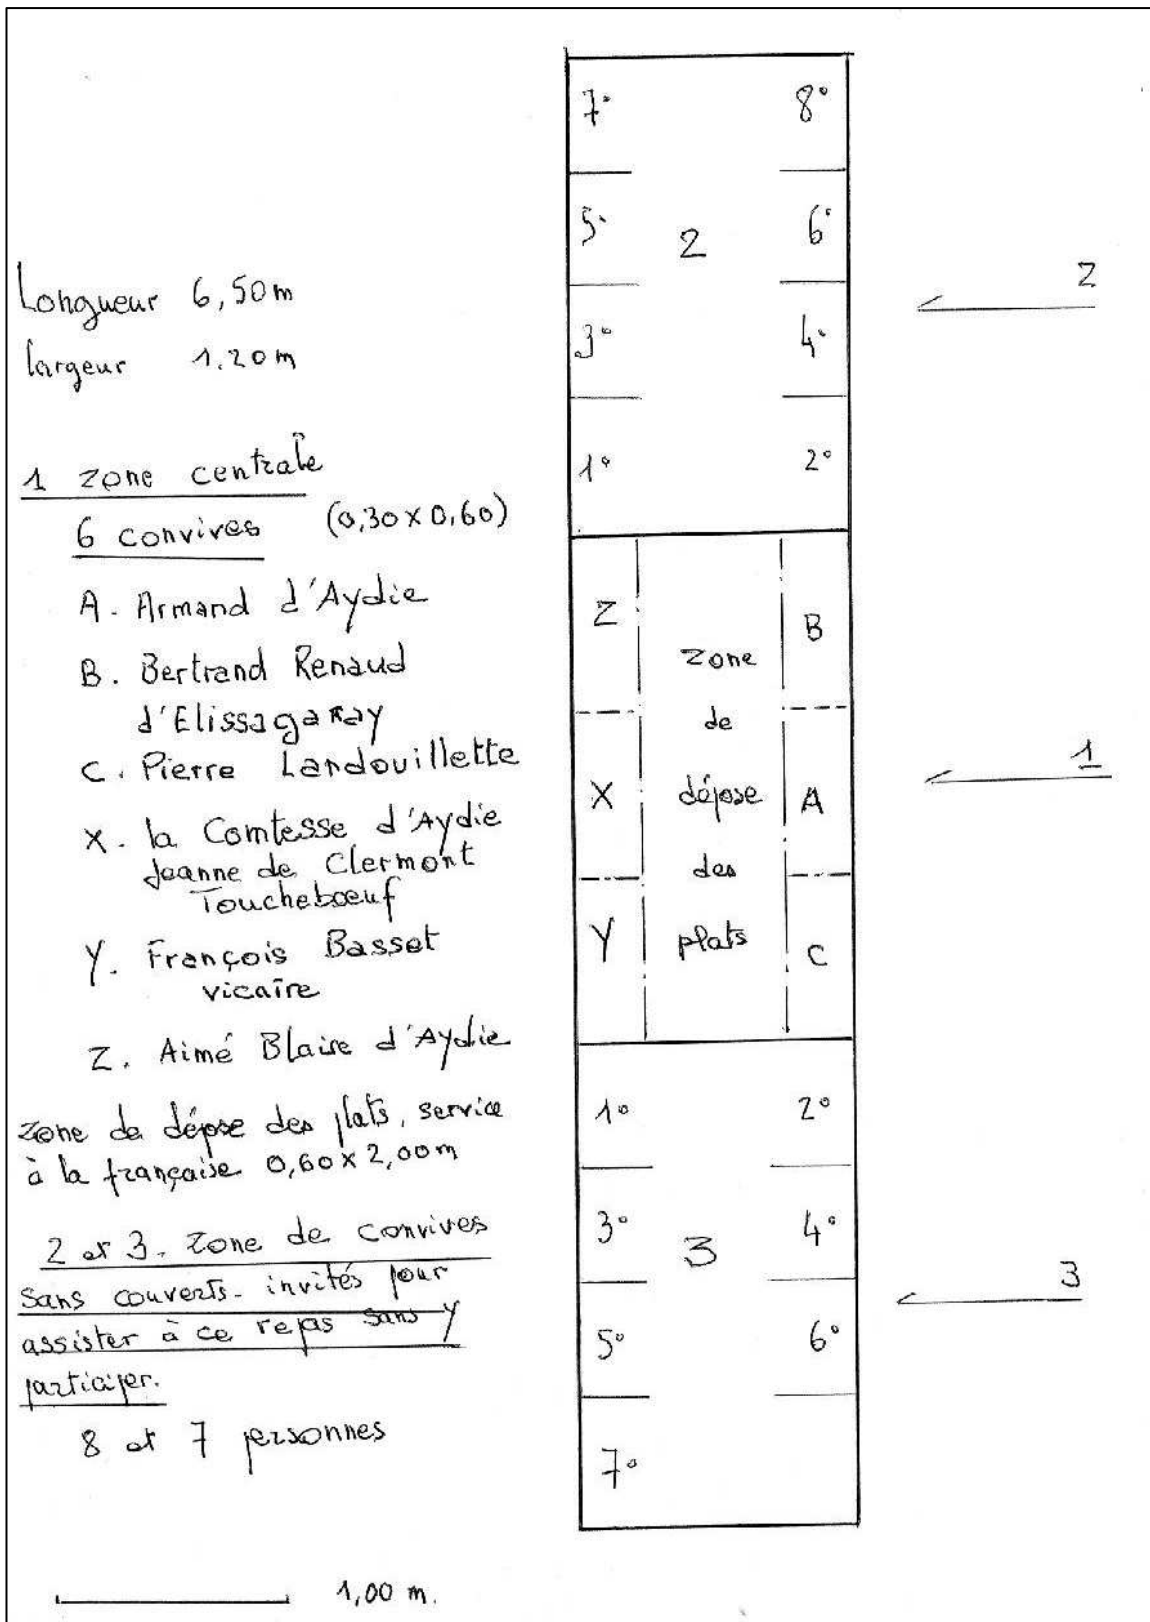 Longueur 6,50m
largeur 1.20m
1 zone centrale
6 convives (0,30 x 0,60)
A. Armand d'Aydie
B. Bertrand Renaud
d'Elissagaray
C. Pierre Landouillette
X. la Comtesse d'Aydie
Jeanne de Clermont
Toucheboeuf
Y. François Basset
vicaire
Z. Aimé Blaise d'Aydie
zone de dépose des plats, service
à la française 0,60 x 2,00m
2 et 3. zone de convives
sans couverts. invités pour
assister à ce repas sans y
participer.
8 et 7 personnes
1,00 m.
7° 8°
5° 2 6°
3° 4°
1° 2°
Z zone B
de
X dépose A
des
Y plats C
1° 2°
3° 3 4°
5° 6°
7°
2
1
3